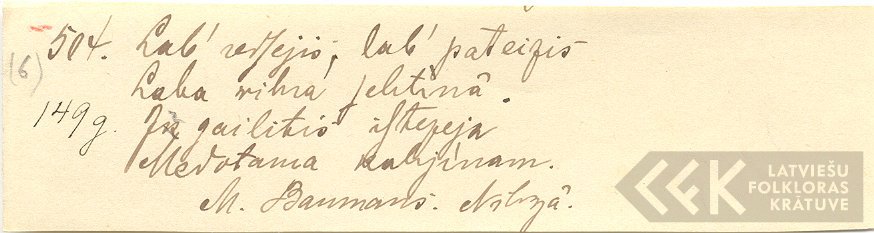 504. Lab' redsejis, lab' pateizis
(6)
Laba vihra sehtinâ.
149g. gailitis istezeja
Medotama kahjinam.
M. Baumans.
LATVIEŠU
FOLKLORAS
KRĀTUVE